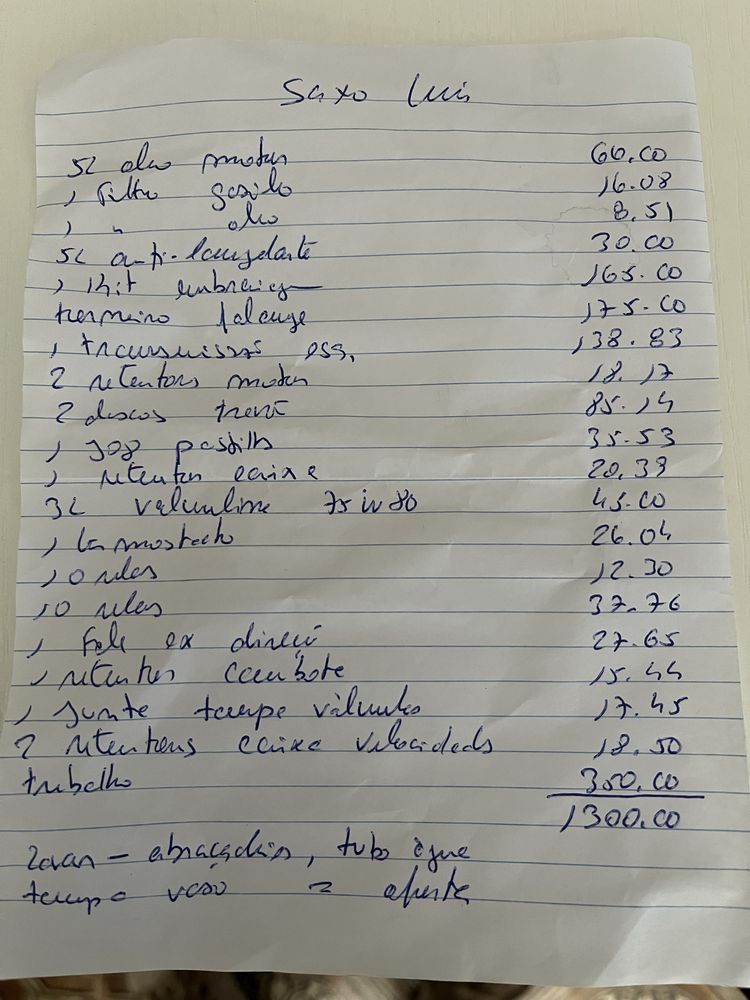 Saxo Luis
5L oleo motor 60.00
1 Filtro gasoleo 16.08
1 " oleo 8.51
5L anti-congelante 30.00
1 kit embraiagem 165.00
175.00
1 transmissão esq. 138.83
2 retentores motor 18.17
2 discos trav 85.14
1 jogo pastilhas 35.53
1 retentor caixa 20.39
3L valvuline 75W80 45.00
1 termostato 26.04
10 velas 12.30
10 velas 37.76
1 Fole ex direção 27.65
1 retentor cambote 15.44
1 junta tampa válvulas 17.45
2 retentores caixa velocidades 18.50
trabalho 350.00
1300.00
levar - abraçadeiras, tubo água
tampa vaso = oferta